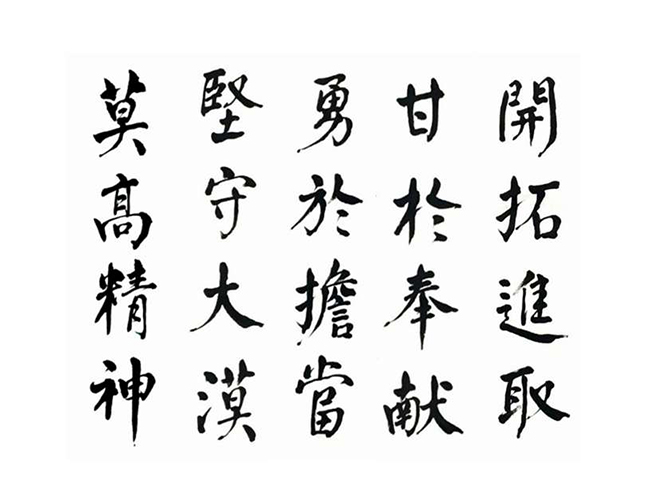 開拓進取
甘於奉献
勇於擔當
堅守大漠
莫高精神